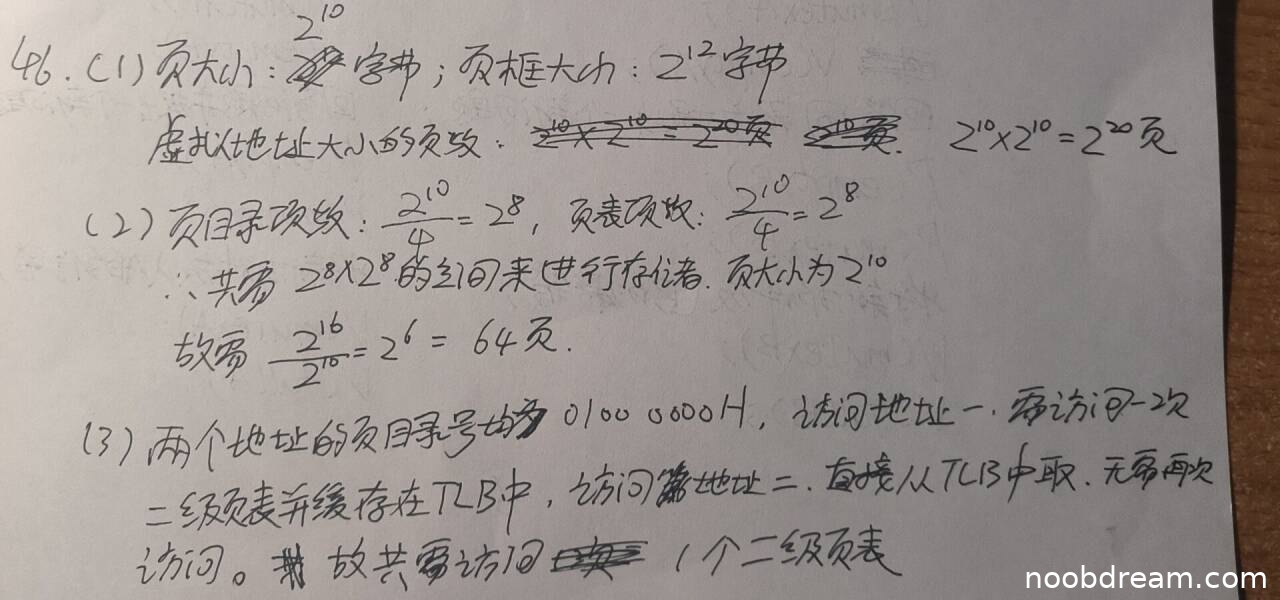 46. (1) 页大小: 2^10 字节; 页框大小: 2^12 字节
虚拟地址大小的页数: 2^10×2^10=2^20页 2^10页. 2^10×2^10=2^20页
(2) 页目录项数: 2^10/4=2^8, 页表项数: 2^10/4=2^8
∴共需 2^8×2^8 的空间来进行存储. 页大小为2^10
故需 2^16/2^10=2^6=64页.
(3) 两个地址的页目录号均为 0100 0000H, 访问地址一. 需访问一次
二级页表并缓存在TLB中, 访问地址二. 直接从TLB中取. 无需再次
访问。故共需访问 1个二级页表
noobdream.com